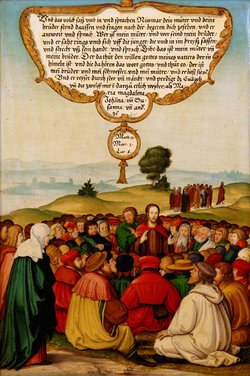 Und das volck saß vm in vnd sprachen Nimmar dein můter vnd deine
brüder stond daussen vnd fragen nach dir begeren dich zesehen. vnd er
antwort vnd sprach. Wer ist mein můter. vnd wer seind mein brüder.
vnd er sahe rings vmb sich vff die junger. die vmb in im kreyß sassen.
vnd streckt vß sein hand. vnd sprach Sihe das ist mein můter vn
meine brüder. Der da thůt den willen gottes meines vatters der im
himeln ist. vnd die da hören das wort gotts. vnd thůt es. der ist
mei brůder. vnd mei schwester. vnd mei můter. vnd
Und er
vnd predigt dz Euāgeli
vn die zwolff mit
etlich weyber. als Ma
ria magdalena
Johāna. vn Su
sanna. vn and.
Math. 12.
Mar. 3.
Luc. 8.